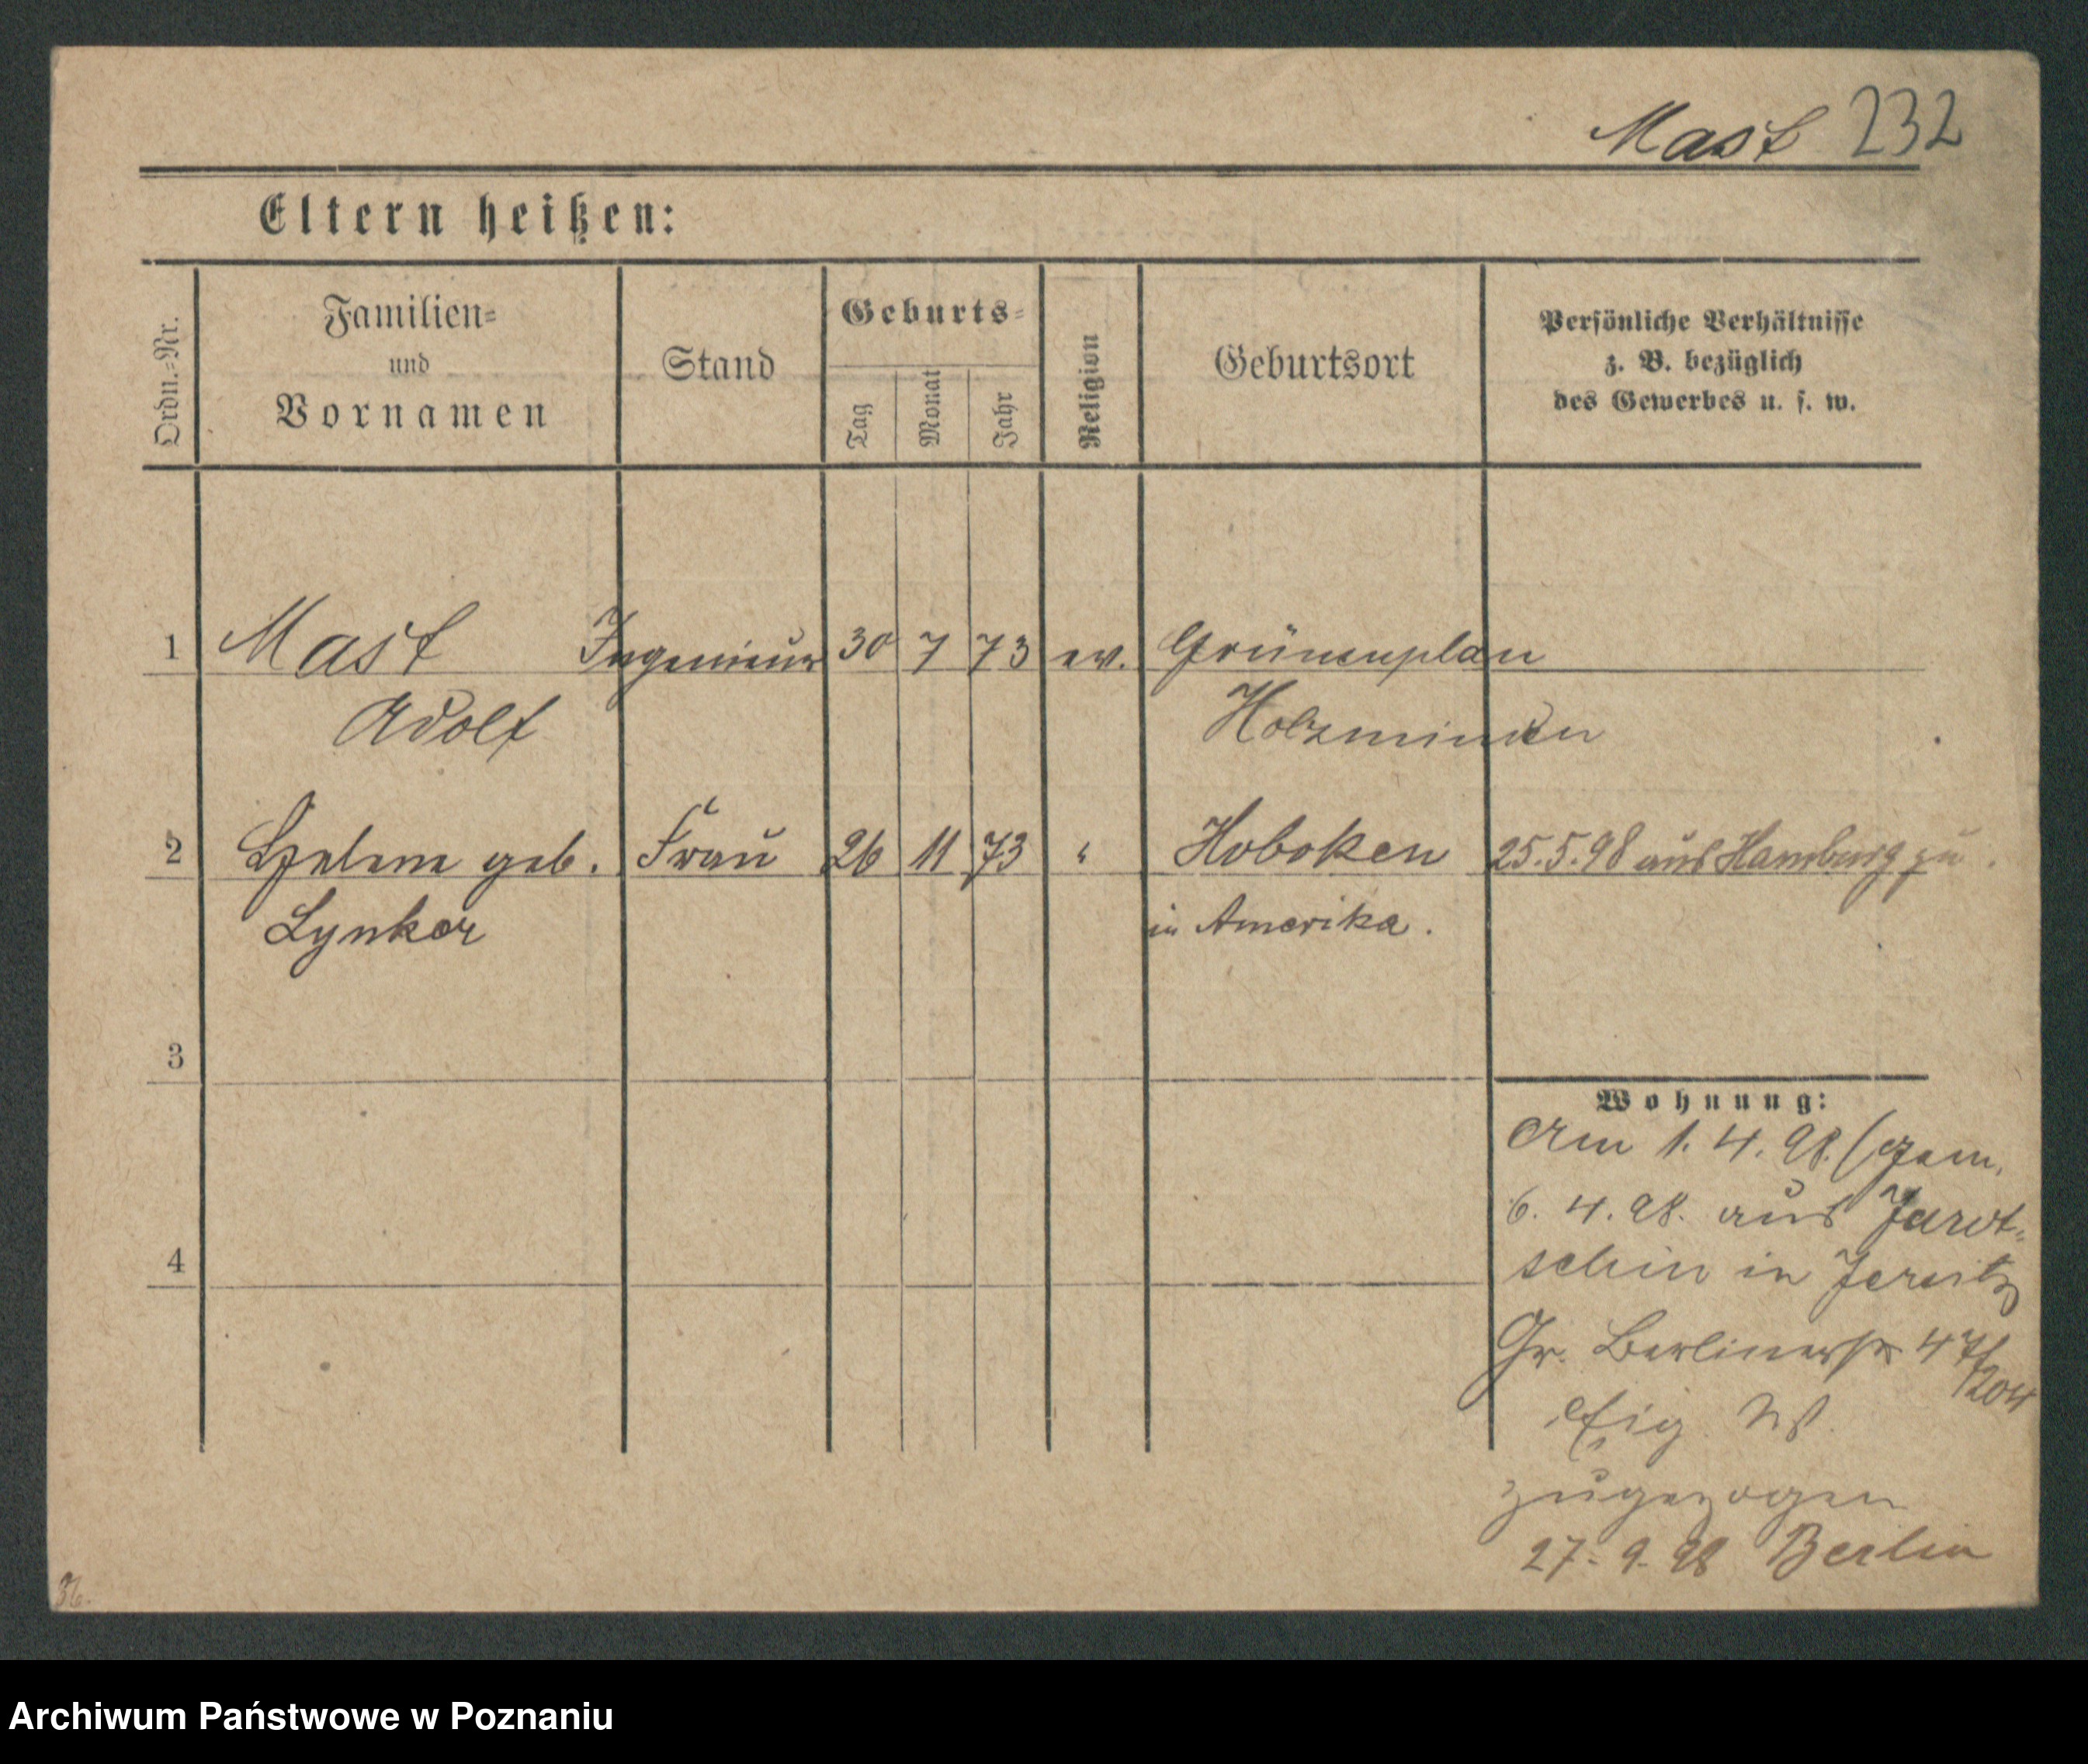 Mast 232
Eltern heißen:
Ordn.=Nr.
Familien=
und
Vornamen
Stand
Geburts=
Tag
Monat
Jahr
Religion
Geburtsort
Persönliche Verhältnisse
z. B. bezüglich
des Gewerbes u. s. w.
1 Mast Ingenieur 30 7 73 ev. Grünenplan
Adolf Holzminden
2 Helene geb. Frau 26 11 73 " Hoboken 25.5.98 aus Hamburg zu.
Lynker in Amerika.
3
Wohnung:
Am 1. 4. 98. (gem.
6. 4. 98. aus Jarot-
4 schin in Jersitz
Gr. Berlinerstr 47
/204
Eig. W.
zugezogen
27. 9. 98 Berlin
36.
Archiwum Państwowe w Poznaniu